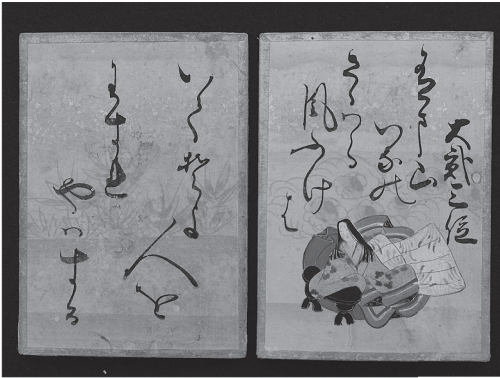 大弐三位
有ま山
いなの
さゝハら
風ふけ
は
いてそよ人を
わすれ
やハする